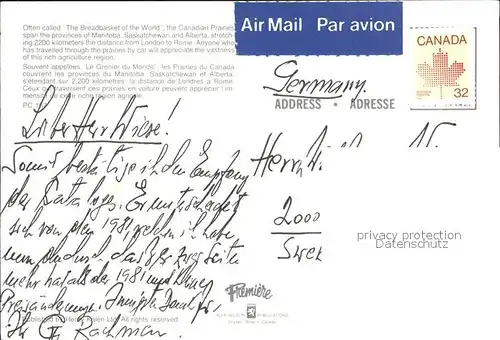 Often called "The Breadbasket of the World", the Canadian Prairies
span the provinces of Manitoba, Saskatchewan and Alberta, stretch-
ing 2,200 kilometers the distance from London to Rome. Anyone who
has travelled through the prairies by car will appreciate the vastness
of this rich agriculture region.
Souvent appelées "Le Grenier du Monde" les Prairies du Canada
couvrent les provinces du Manitoba, Saskatchewan et Alberta,
s'étendant sur 2,200 kilometres la distance de Londres à Rome
Ceux qui traversent ces prairies en voiture peuvent apprécier l'im-
mensité de cette riche région agricole.
PC
Air Mail Par avion
CANADA
32
Germany
ADDRESS • ADRESSE
Lieber Herr Wiese!
Somit bestätige ich den Empfang
des Kataloges. Er unterscheidet
sich von dem 1981, welchen ich habe
nur dadurch, dass er zwei Seiten
mehr hat als der 1981 und
Preisänderungen.
Ihr Rachman
Herrn
2000
privacy protection
Datenschutz
Première
Published by Ltd. All rights reserved